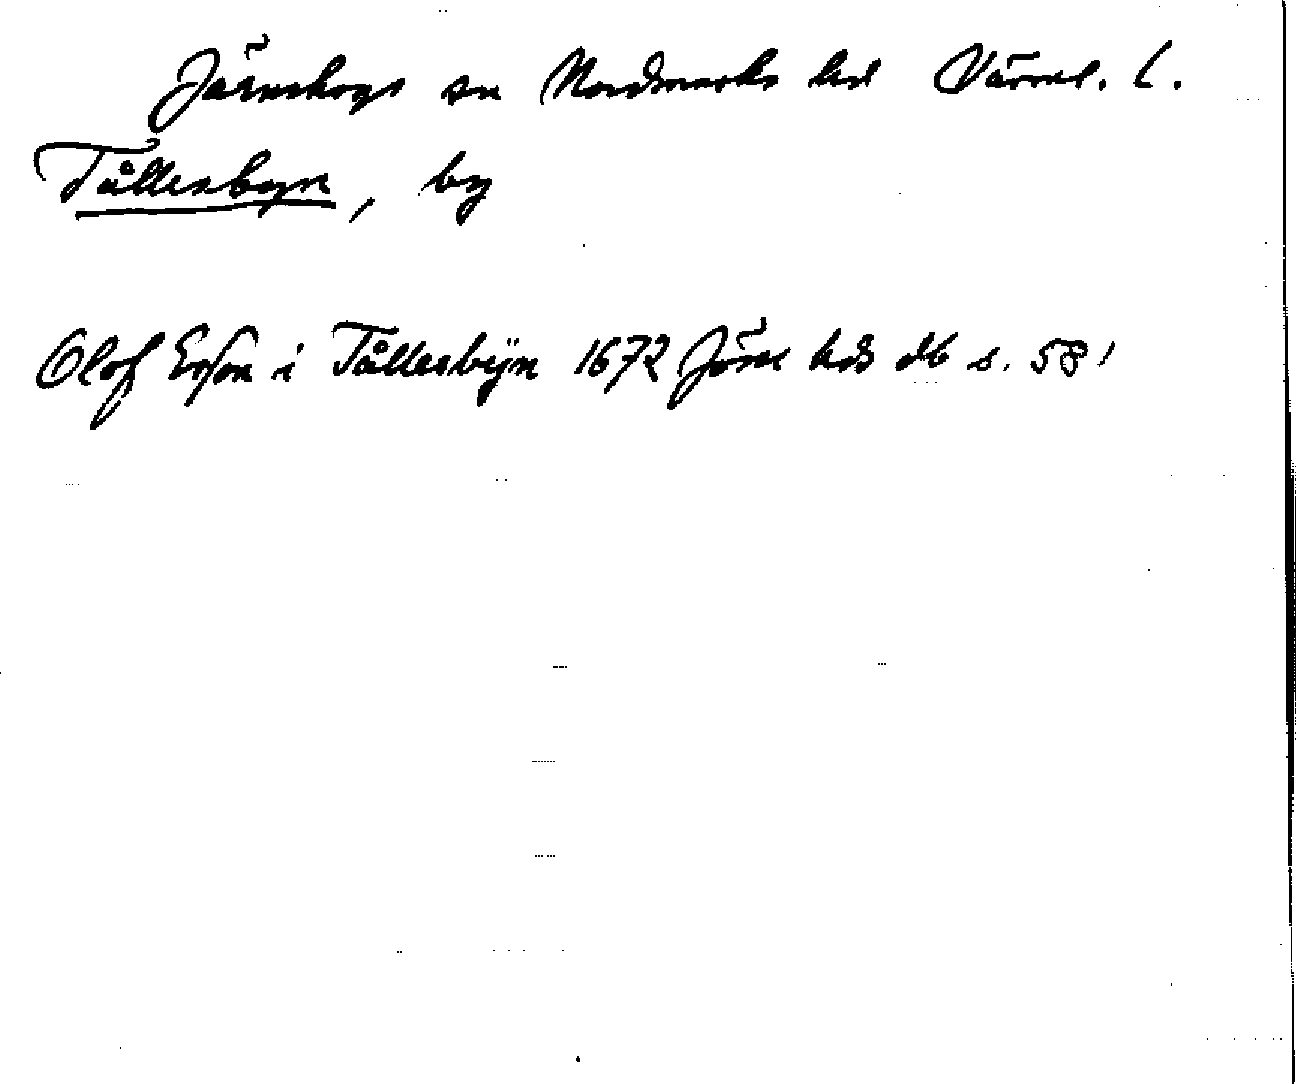 Järnskogs sn Nordmarks hd Värml. l.
Tållesbyn, by
Olof Ersson i Tållesbÿn 1672 Jösse hds db s. 58'